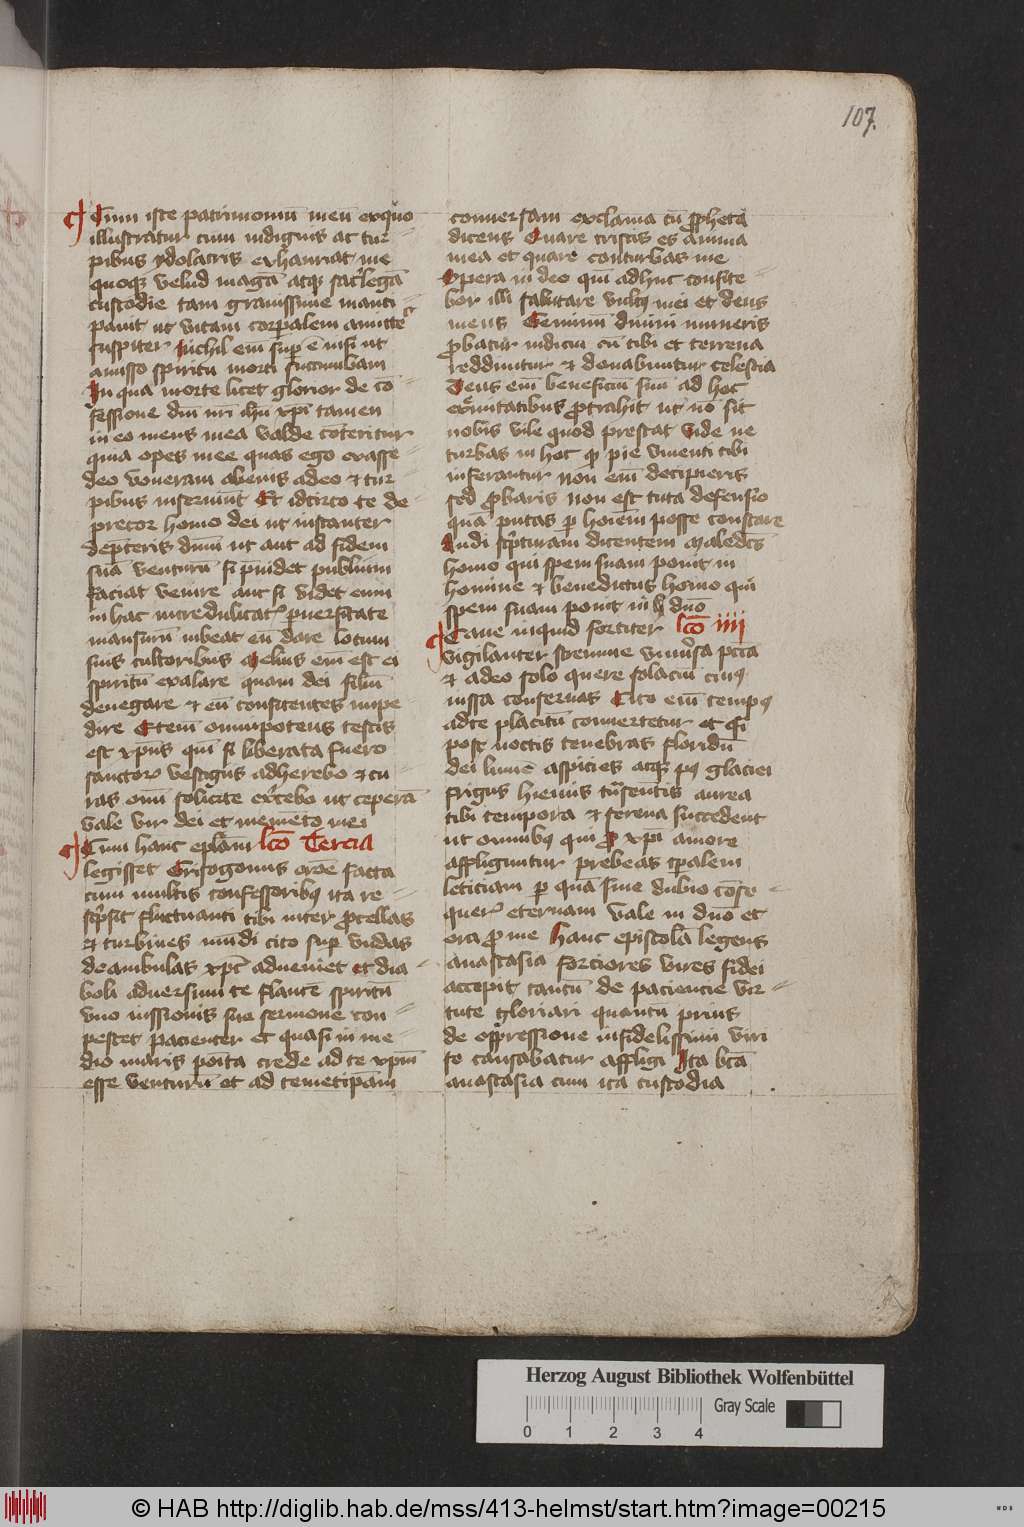 107.
Cum iste patrimoniū meū exquo
illustratur cum indignis ac tur
pibus ydolatris exhauriat me
quoqꝫ velud magā atqꝫ sacˡlegā
custodie tam grauissime manci
pauit ut vitam corpalem amitte
suspiter Nichil em̄ sup ē nisi ut
amisso spiritu morti succumbam
In qua morte licet glorior de cō
fessione dn̄i nr̄i ihū xp̄i tamen
in eo mens mea valde conteritur
quia opes mee quas ego exasse
deo voueram alienis a deo ⁊ tur
pibus inseruiūt Et idcirco te de
precor homo dei ut instanter
dep̄ceris dn̄m ut aut ad fidem
suā venturū si p̄uidet publium
faciat venire aut si videt eum
in hac incredulitatꝭ puersitate
mansurū iubeat eū dare locum
suis cultoribus Melius em̄ est ei
spiritū exalare quam dei filiū
denegare ⁊ eū confitentes impe
dire Etem̄ omnipotens testis
est xp̄us qui si liberata fuero
sanctorꝝ vestigiis adherebo ⁊ cu
ras om̄ solicite exˡcebo ut ceperā
vale vir dei et memēto mei
Cum hanc eplām lcō Tercia
legisset Crisogonus orōe facta
cum multis confessoribꝰ ita re
scˡpsit fluctuanti tibi inter procellas
⁊ turbines mūdi cito sup vndas
deambulas xp̄c adueniet et dia
boli aduersum te flantē spiritū
vno iussionis sue sermone con
pescet pacienter et quasi in me
dio maris poita crede ad te xpm̄
esse venturū et ad temetip̄am
conuersam exclama cū propheta
dicens Quare tristis es anima
mea et quare conturbas me
Spera in deo qm̄ adhuc confite
bor illi salutare vultꝰ mei et deus
meus Geminū diuini muneris
probatur iudiciū cū tibi et terrena
reddūntur ⁊ donabuntur celestia
Deus em̄ beneficiū suū ad hec
exˡmitatibus protrahit ut nō sit
nobis vile quod prestat vide ne
turbas in hoc qꝫ pie viuenti tibi
inferantur non em̄ deciperis
sed probaris non est tuta defensio
quā putas p hoīem posse constare
Audi scˡpturam dicentem Maledcūs
homo qui spem suam ponit in
homine ⁊ benedictus homo qui
spem suam ponit in dn̄o
Caue inquid fortiter lcō iiii
vigilanter strenue vniūˡsa pctā
⁊ a deo solo quere solaciū ciuꝰ
iussa conseruas Cito em̄ tempꝰ
ad te placitū conuertetur et si
post noctis tenebras floridū
dei lumē aspicies atqꝫ pꝰ glaciei
frigus hiemis trˡsentis aurea
tibi tempora ⁊ serena succedent
ut omnibꝰ qui pro xp̄i amore
affliguntur prebeas tp̄alem
leticiam p quā sine dubio conse
querꝭ eternam vale in dn̄o et
ora pro me Hanc epistolā legens
anastasia forciores vires fidei
accepit tantū de paciencie vir
tute gloriari quantū prius
de oppressione infidelissimi viri
to causabatur affligi Ita bcā
anastasia cum ita custodia
Herzog August Bibliothek Wolfenbüttel
Gray Scale
0 1 2 3 4
© HAB http://diglib.hab.de/mss/413-helmst/start.htm?image=00215